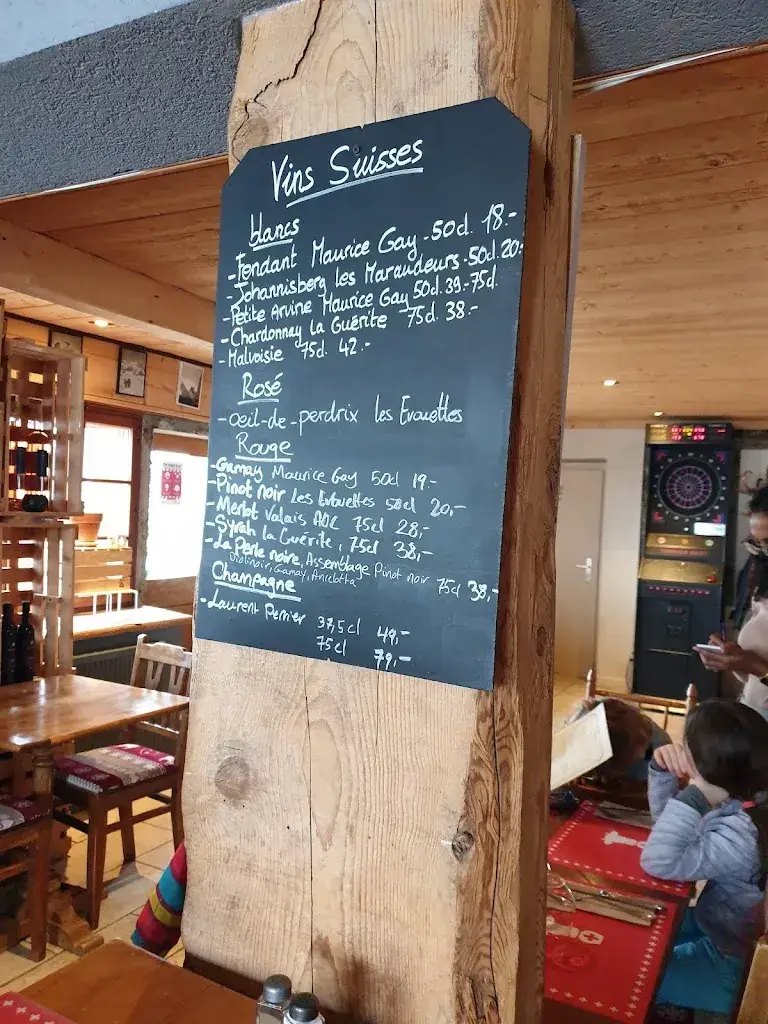 Vins Suisses
blancs
- Fendant Maurice Gay - 50cl. 18.-
- Johannisberg les Maraudeurs - 50cl. 20.-
- Petite Arvine Maurice Gay 50cl. 39.- 75cl.
- Chardonnay la Guérite 75cl. 38.-
- Malvoisie 75cl. 42.-
Rosé
- œil-de-perdrix les Evouettes
Rouge
- Gamay Maurice Gay 50cl 19.-
- Pinot noir Les Evouettes 50cl 20,-
- Merlot Valais AOC 75cl 28,-
- Syrah la Guérite, 75cl 38,-
- La Perle noire, Assemblage Pinot noir 75cl 38,-
Violinoir, Gamay, Ancelotta
Champagne
- Laurent Perrier 37,5cl 49,-
75cl 79,-